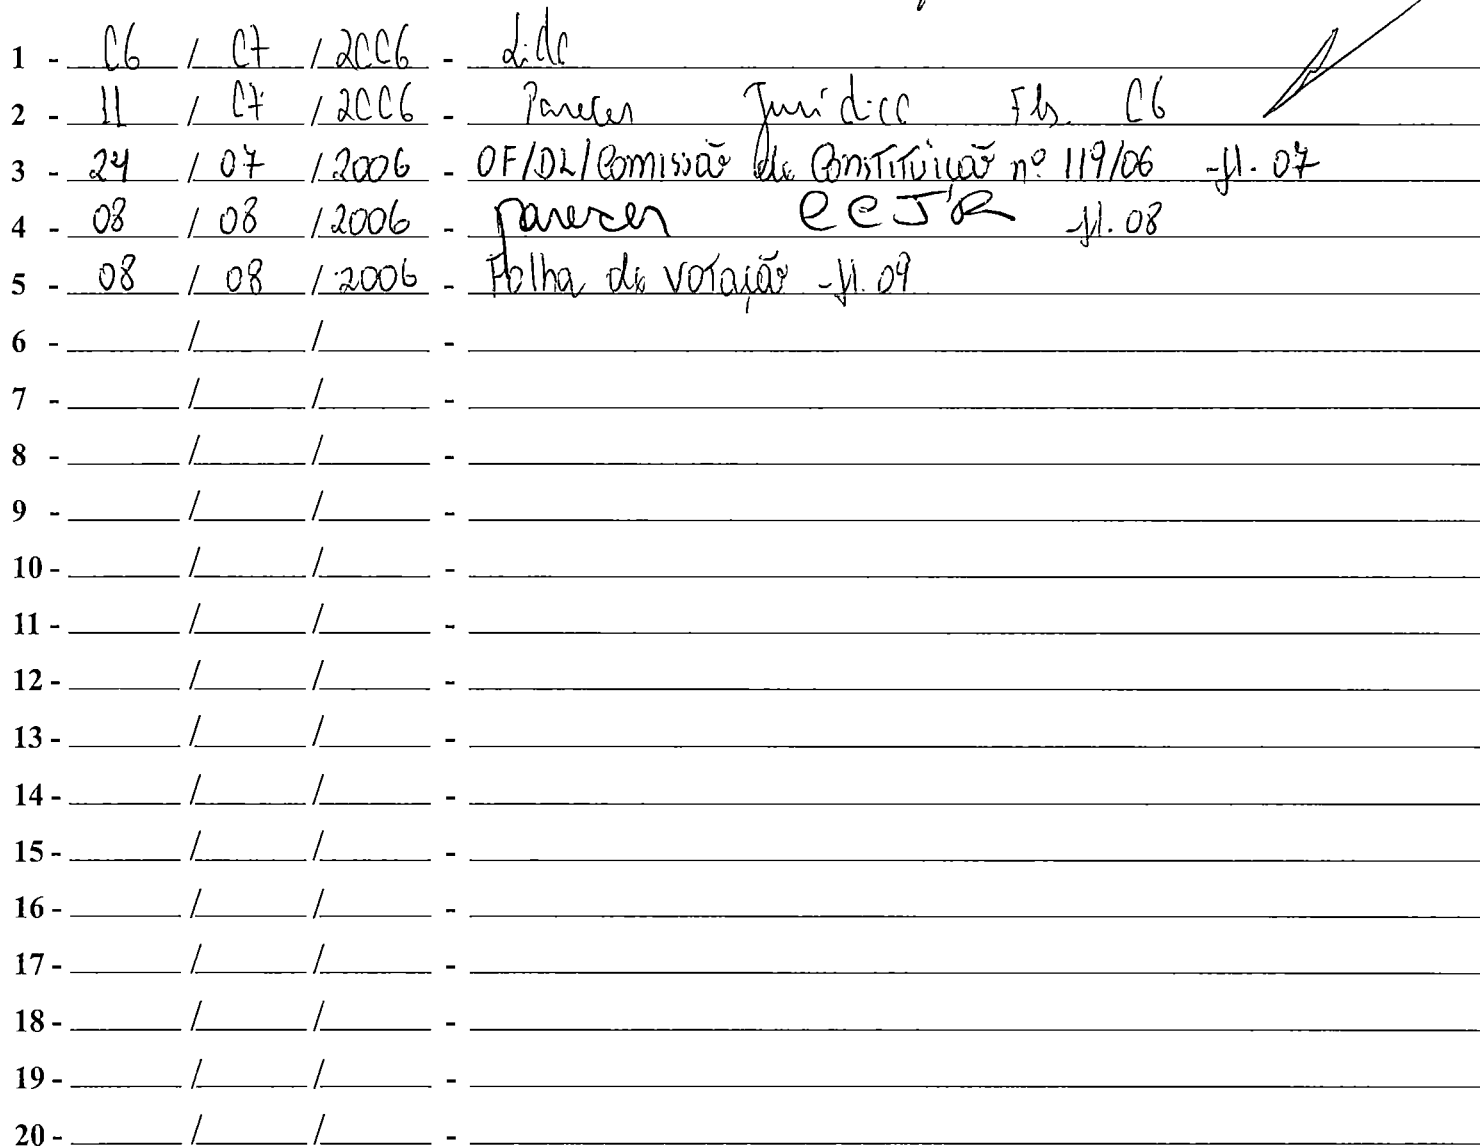 1 - 06 / 07 / 2006 - Lido
2 - 11 / 07 / 2006 - Parecer Jurídico Fls. 06
3 - 24 / 07 / 2006 - OF/DL/Comissão de Constituição nº 119/06 -fl. 07
4 - 08 / 08 / 2006 - parecer CCJR -fl. 08
5 - 08 / 08 / 2006 - Folha de votação -fl. 09
6 - / / -
7 - / / -
8 - / / -
9 - / / -
10 - / / -
11 - / / -
12 - / / -
13 - / / -
14 - / / -
15 - / / -
16 - / / -
17 - / / -
18 - / / -
19 - / / -
20 - / / -